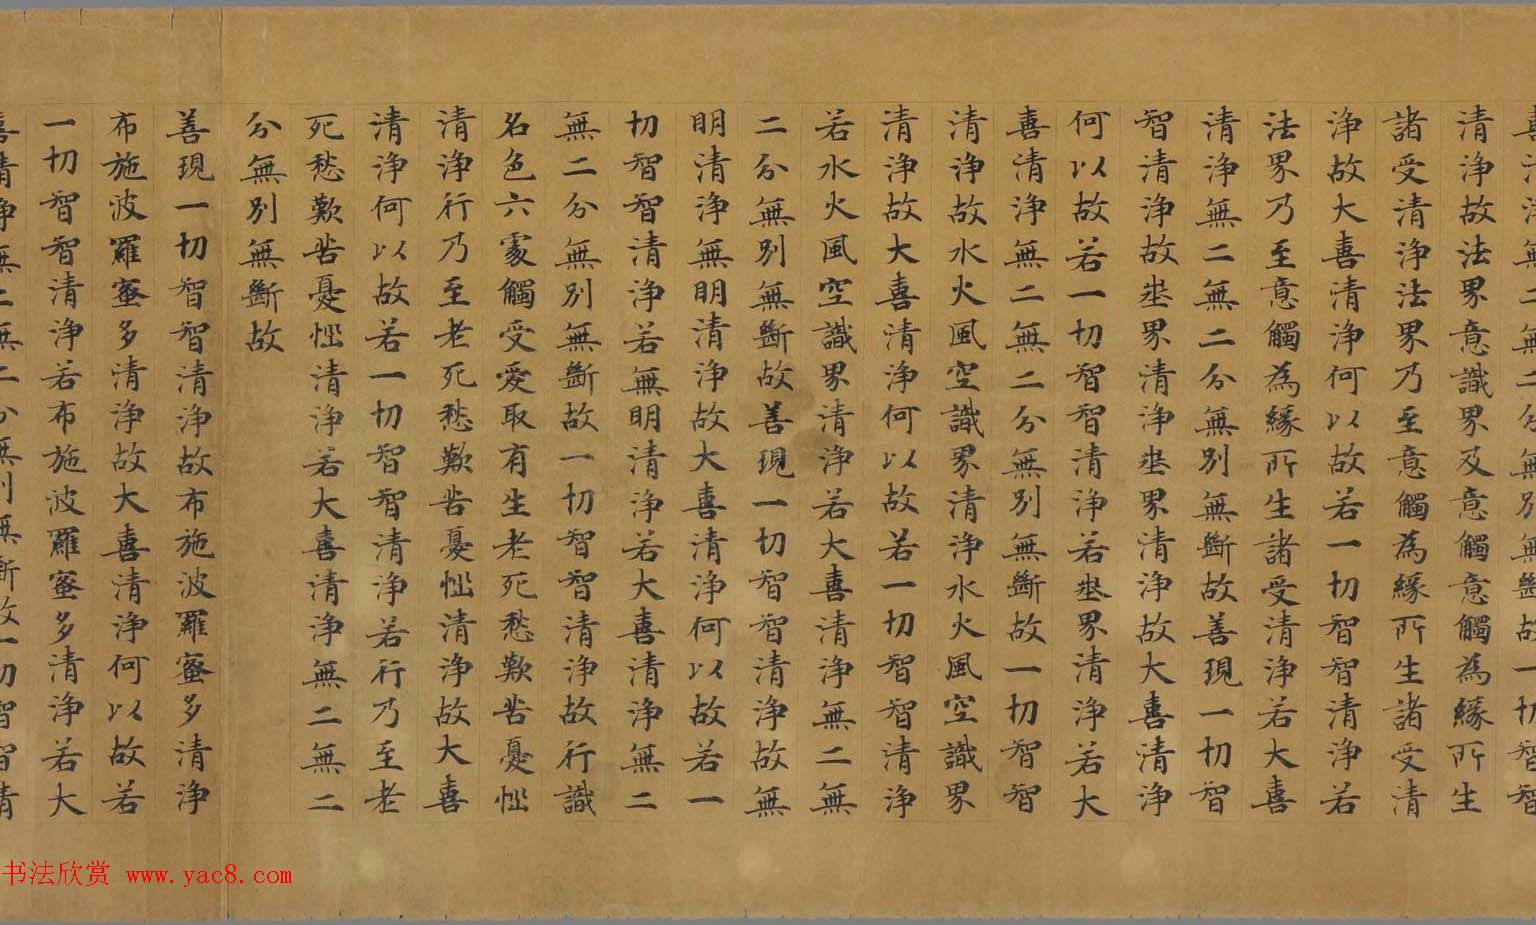 喜清淨無二無二分無別無斷故一切智智
清淨故法界意識界及意觸意觸為緣所生
諸受清淨法界乃至意觸為緣所生諸受清
淨故大喜清淨何以故若一切智智清淨若
法界乃至意觸為緣所生諸受清淨若大喜
清淨無二無二分無別無斷故善現一切智
智清淨故地界清淨地界清淨故大喜清淨
何以故若一切智智清淨若地界清淨若大
喜清淨無二無二分無別無斷故一切智智
清淨故水火風空識界清淨水火風空識界
清淨故大喜清淨何以故若一切智智清淨
若水火風空識界清淨若大喜清淨無二無
二分無別無斷故善現一切智智清淨故無
明清淨無明清淨故大喜清淨何以故若一
切智智清淨若無明清淨若大喜清淨無二
無二分無別無斷故一切智智清淨故行識
名色六處觸受愛取有生老死愁歎苦憂惱
清淨行乃至老死愁歎苦憂惱清淨故大喜
清淨何以故若一切智智清淨若行乃至老
死愁歎苦憂惱清淨若大喜清淨無二無二
分無別無斷故
善現一切智智清淨故布施波羅蜜多清淨
布施波羅蜜多清淨故大喜清淨何以故若
一切智智清淨若布施波羅蜜多清淨若大
喜清淨無二無二分無別無斷故一切智智清
书法欣赏 www.yac8.com